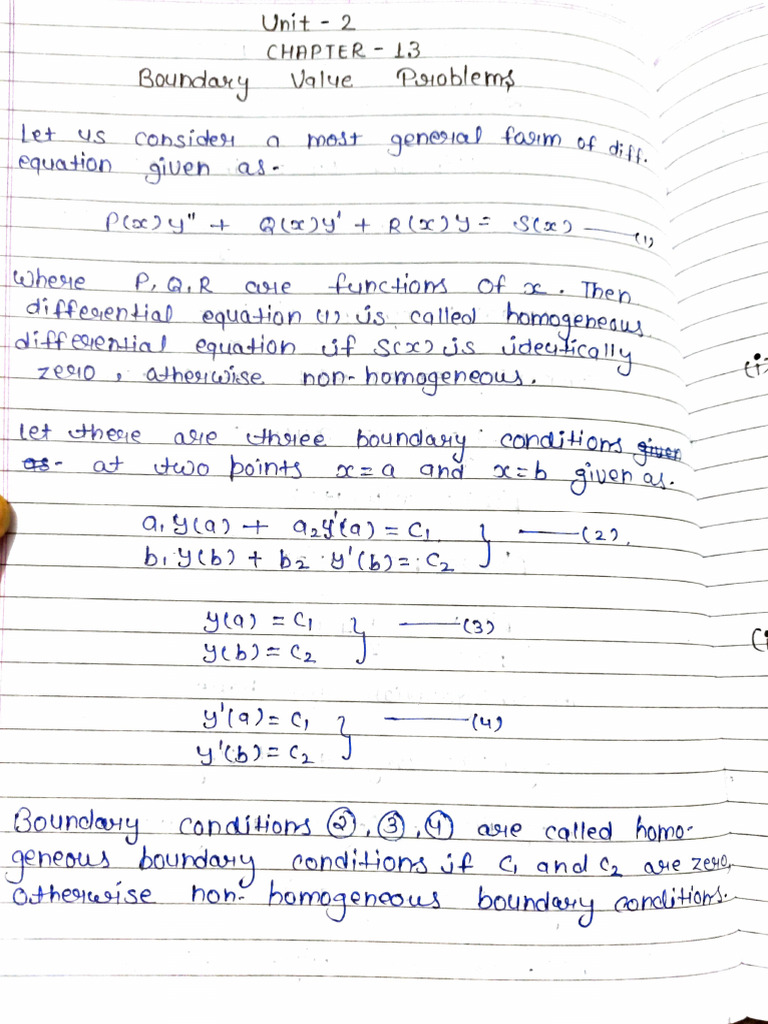 Unit - 2
CHAPTER - 13
Boundary Value Problems
Let us consider a most general farm of diff.
equation given as-
P(x)y" + Q(x)y' + R(x)y = S(x) —— (1)
Where P, Q, R are functions of x. Then
differential equation (1) is called homogeneous
differential equation if S(x) is identically
zero, atherwise non-homogeneous.
Let there are three boundary conditions given
as- at two points x=a and x=b given as.
a₁y(a) + a₂y'(a) = C₁ } —— (2).
b₁y(b) + b₂ y'(b) = C₂
y(a) = C₁ } —— (3)
y(b) = C₂
y'(a) = C₁ } —— (4)
y'(b) = C₂
Boundary conditions ②, ③, ④ are called homo-
geneous boundary conditions if C₁ and C₂ are zero,
otherwise non-homogeneous boundary conditions.